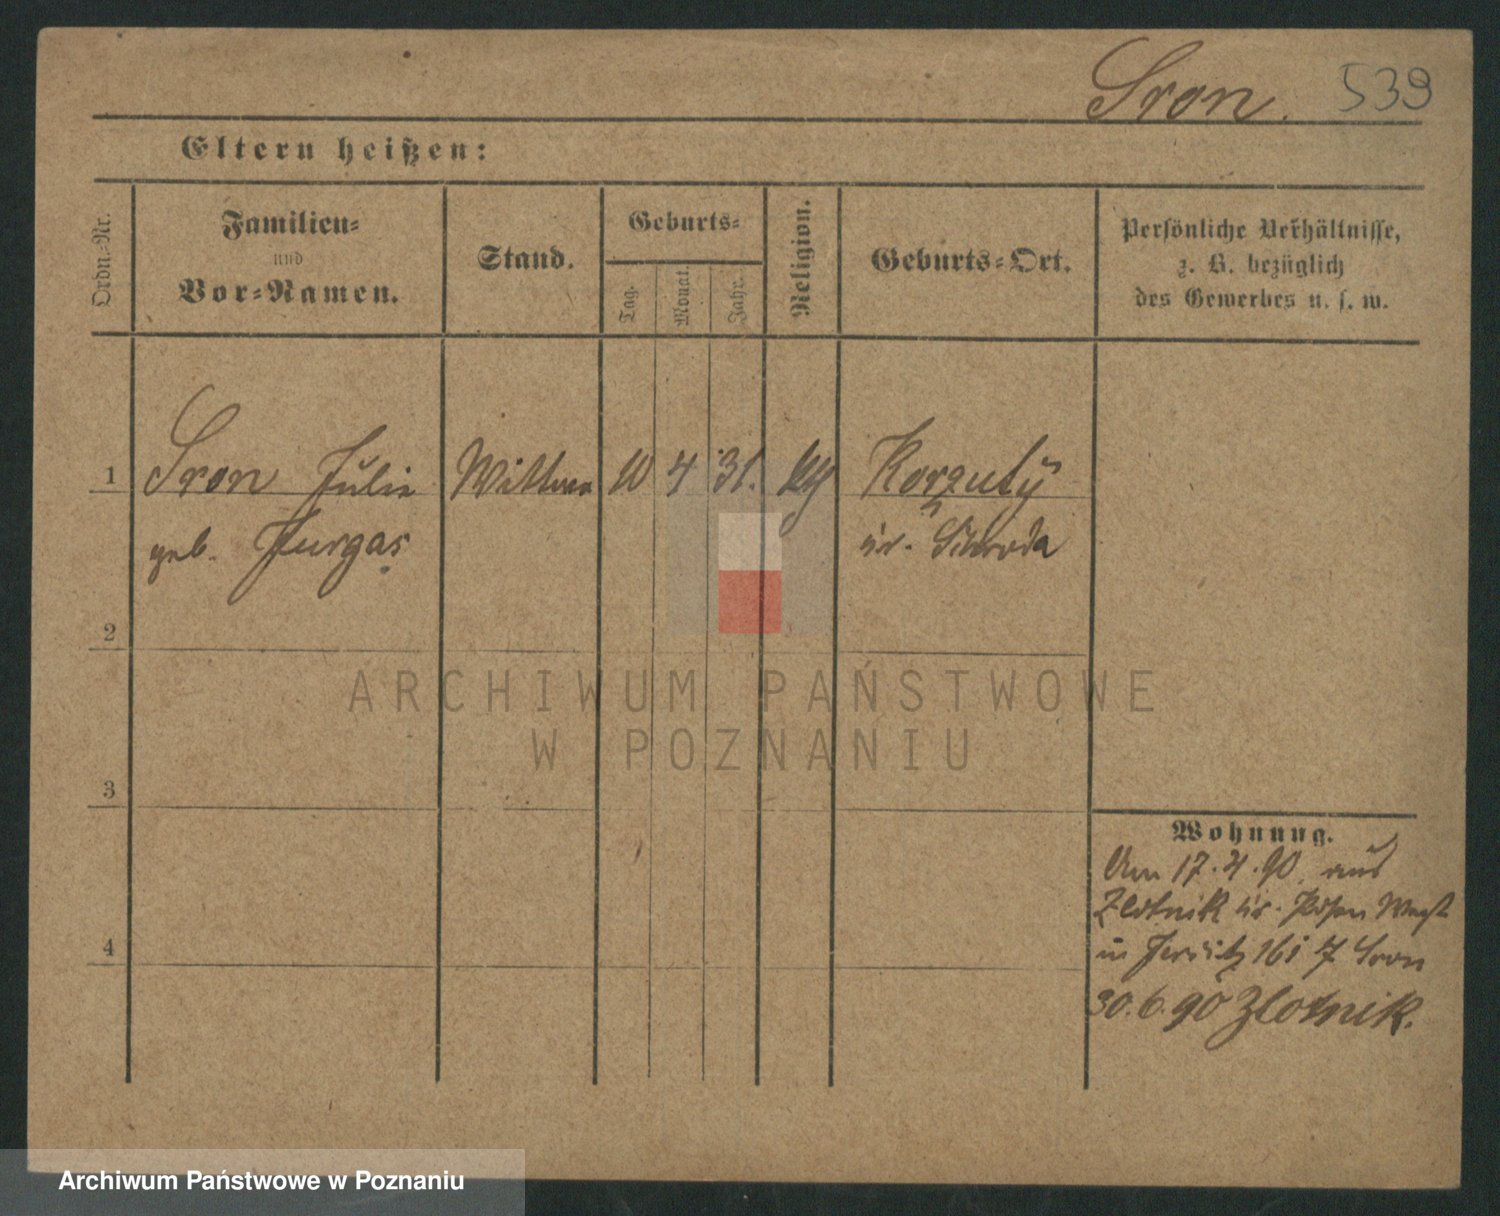 Sron. 539
Eltern heißen:
Ordn.-Nr.
Familien-
und
Vor-Namen.
Stand.
Geburts-
Tag.
Monat.
Jahr.
Religion.
Geburts-Ort.
Persönliche Verhältnisse,
z. B. bezüglich
des Gewerbes u. s. w.
1 Sron Julie Wittwe 10 4 31. Korzuty
geb. Kr. Schroda
2
3
4
Wohnung.
Am 17.4.90 aus
Zlotnik Kr. Posen West
in Jersitz 161 Sron
30.6.90 Zlotnik.
ARCHIWUM PAŃSTWOWE
W POZNANIU
Archiwum Państwowe w Poznaniu